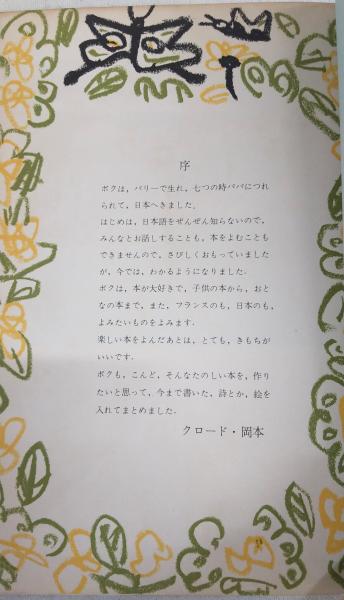 序
ボクは，パリーで生れ，七つの時パパにつれ
られて，日本へきました．
はじめは，日本語をぜんぜん知らないので，
みんなとお話しすることも，本をよむことも
できませんので，さびしくおもっていました
が，今では，わかるようになりました．
ボクは，本が大好きで，子供の本から，おと
なの本まで，また，フランスのも，日本のも，
よみたいものをよみます．
楽しい本をよんだあとは，とても，きもちが
いいです．
ボクも，こんど，そんなたのしい本を，作り
たいと思って，今まで書いた，詩とか，絵を
入れてまとめました．
クロード・岡本